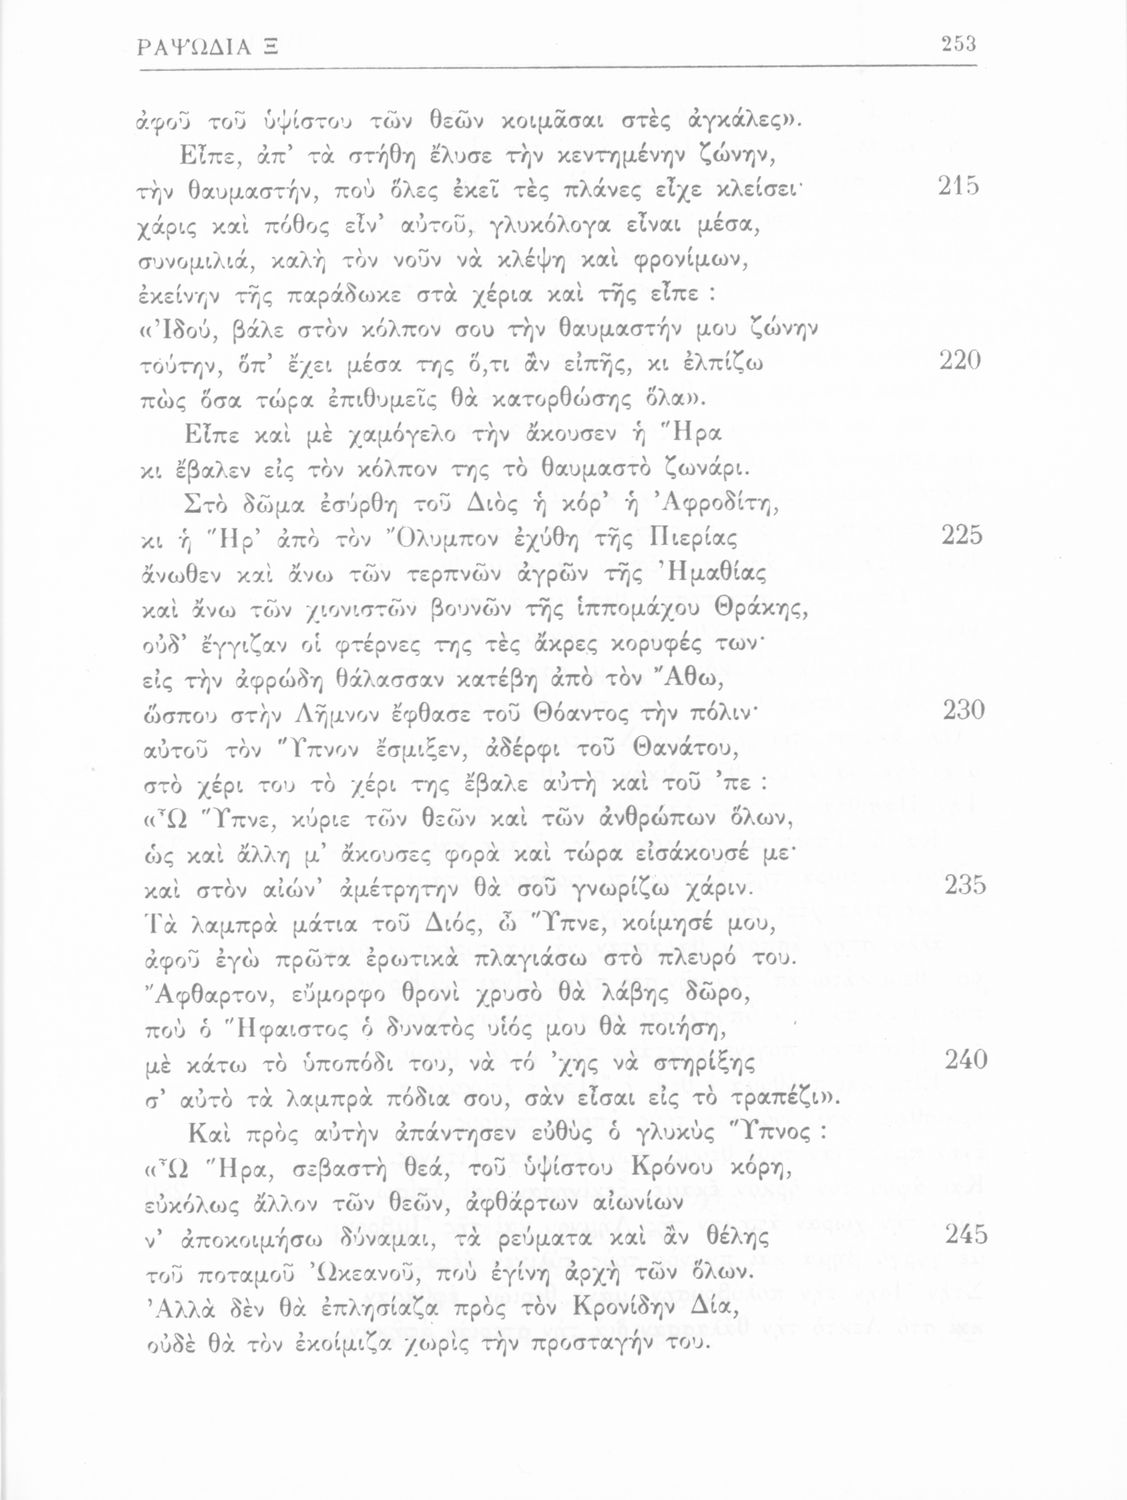 ΡΑΨΩΔΙΑ Ξ 253
ἀφοῦ τοῦ ὑψίστου τῶν θεῶν κοιμᾶσαι στὲς ἀγκάλες».
Εἶπε, ἀπ’ τὰ στήθη ἔλυσε τὴν κεντημένην ζώνην,
τὴν θαυμαστήν, ποὺ ὅλες ἐκεῖ τὲς πλάνες εἶχε κλείσει· 215
χάρις καὶ πόθος εἶν’ αὐτοῦ, γλυκόλογα εἶναι μέσα,
συνομιλιά, καλὴ τὸν νοῦν νὰ κλέψη καὶ φρονίμων,
ἐκείνην τῆς παράδωκε στὰ χέρια καὶ τῆς εἶπε :
«Ἰδού, βάλε στὸν κόλπον σου τὴν θαυμαστήν μου ζώνην
τούτην, ὅπ’ ἔχει μέσα της ὅ,τι ἂν εἰπῆς, κι ἐλπίζω 220
πὼς ὅσα τώρα ἐπιθυμεῖς θὰ κατορθώσης ὅλα».
Εἶπε καὶ μὲ χαμόγελο τὴν ἄκουσεν ἡ Ἥρα
κι ἔβαλεν εἰς τὸν κόλπον της τὸ θαυμαστὸ ζωνάρι.
Στὸ δῶμα ἐσύρθη τοῦ Διὸς ἡ κόρ’ ἡ Ἀφροδίτη,
κι ἡ Ἥρ’ ἀπὸ τὸν Ὄλυμπον ἐχύθη τῆς Πιερίας 225
ἄνωθεν καὶ ἄνω τῶν τερπνῶν ἀγρῶν τῆς Ἠμαθίας
καὶ ἄνω τῶν χιονιστῶν βουνῶν τῆς ἱππομάχου Θράκης,
οὐδ’ ἔγγιζαν οἱ φτέρνες της τὲς ἄκρες κορυφές των·
εἰς τὴν ἀφρώδη θάλασσαν κατέβη ἀπὸ τὸν Ἄθω,
ὥσπου στὴν Λῆμνον ἔφθασε τοῦ Θόαντος τὴν πόλιν· 230
αὐτοῦ τὸν Ὕπνον ἔσμιξεν, ἀδέρφι τοῦ Θανάτου,
στὸ χέρι του τὸ χέρι της ἔβαλε αὐτὴ καὶ τοῦ ’πε :
«Ὦ Ὕπνε, κύριε τῶν θεῶν καὶ τῶν ἀνθρώπων ὅλων,
ὡς καὶ ἄλλη μ’ ἄκουσες φορὰ καὶ τώρα εἰσάκουσέ με·
καὶ στὸν αἰών’ ἀμέτρητην θὰ σοῦ γνωρίζω χάριν. 235
Τὰ λαμπρὰ μάτια τοῦ Διός, ὦ Ὕπνε, κοίμησέ μου,
ἀφοῦ ἐγὼ πρῶτα ἐρωτικὰ πλαγιάσω στὸ πλευρό του.
Ἄφθαρτον, εὔμορφο θρονὶ χρυσὸ θὰ λάβης δῶρο,
ποὺ ὁ Ἥφαιστος ὁ δυνατὸς υἱός μου θὰ ποιήση,
μὲ κάτω τὸ ὑποπόδι του, νὰ τό ’χης νὰ στηρίξης 240
σ’ αὐτὸ τὰ λαμπρὰ πόδια σου, σὰν εἶσαι εἰς τὸ τραπέζι».
Καὶ πρὸς αὐτὴν ἀπάντησεν εὐθὺς ὁ γλυκὺς Ὕπνος :
«Ὦ Ἥρα, σεβαστὴ θεά, τοῦ ὑψίστου Κρόνου κόρη,
εὐκόλως ἄλλον τῶν θεῶν, ἀφθάρτων αἰωνίων
ν’ ἀποκοιμήσω δύναμαι, τὰ ρεύματα καὶ ἂν θέλης 245
τοῦ ποταμοῦ Ὠκεανοῦ, ποὺ ἐγίνη ἀρχὴ τῶν ὅλων.
Ἀλλὰ δὲν θὰ ἐπλησίαζα πρὸς τὸν Κρονίδην Δία,
οὐδὲ θὰ τὸν ἐκοίμιζα χωρὶς τὴν προσταγήν του.